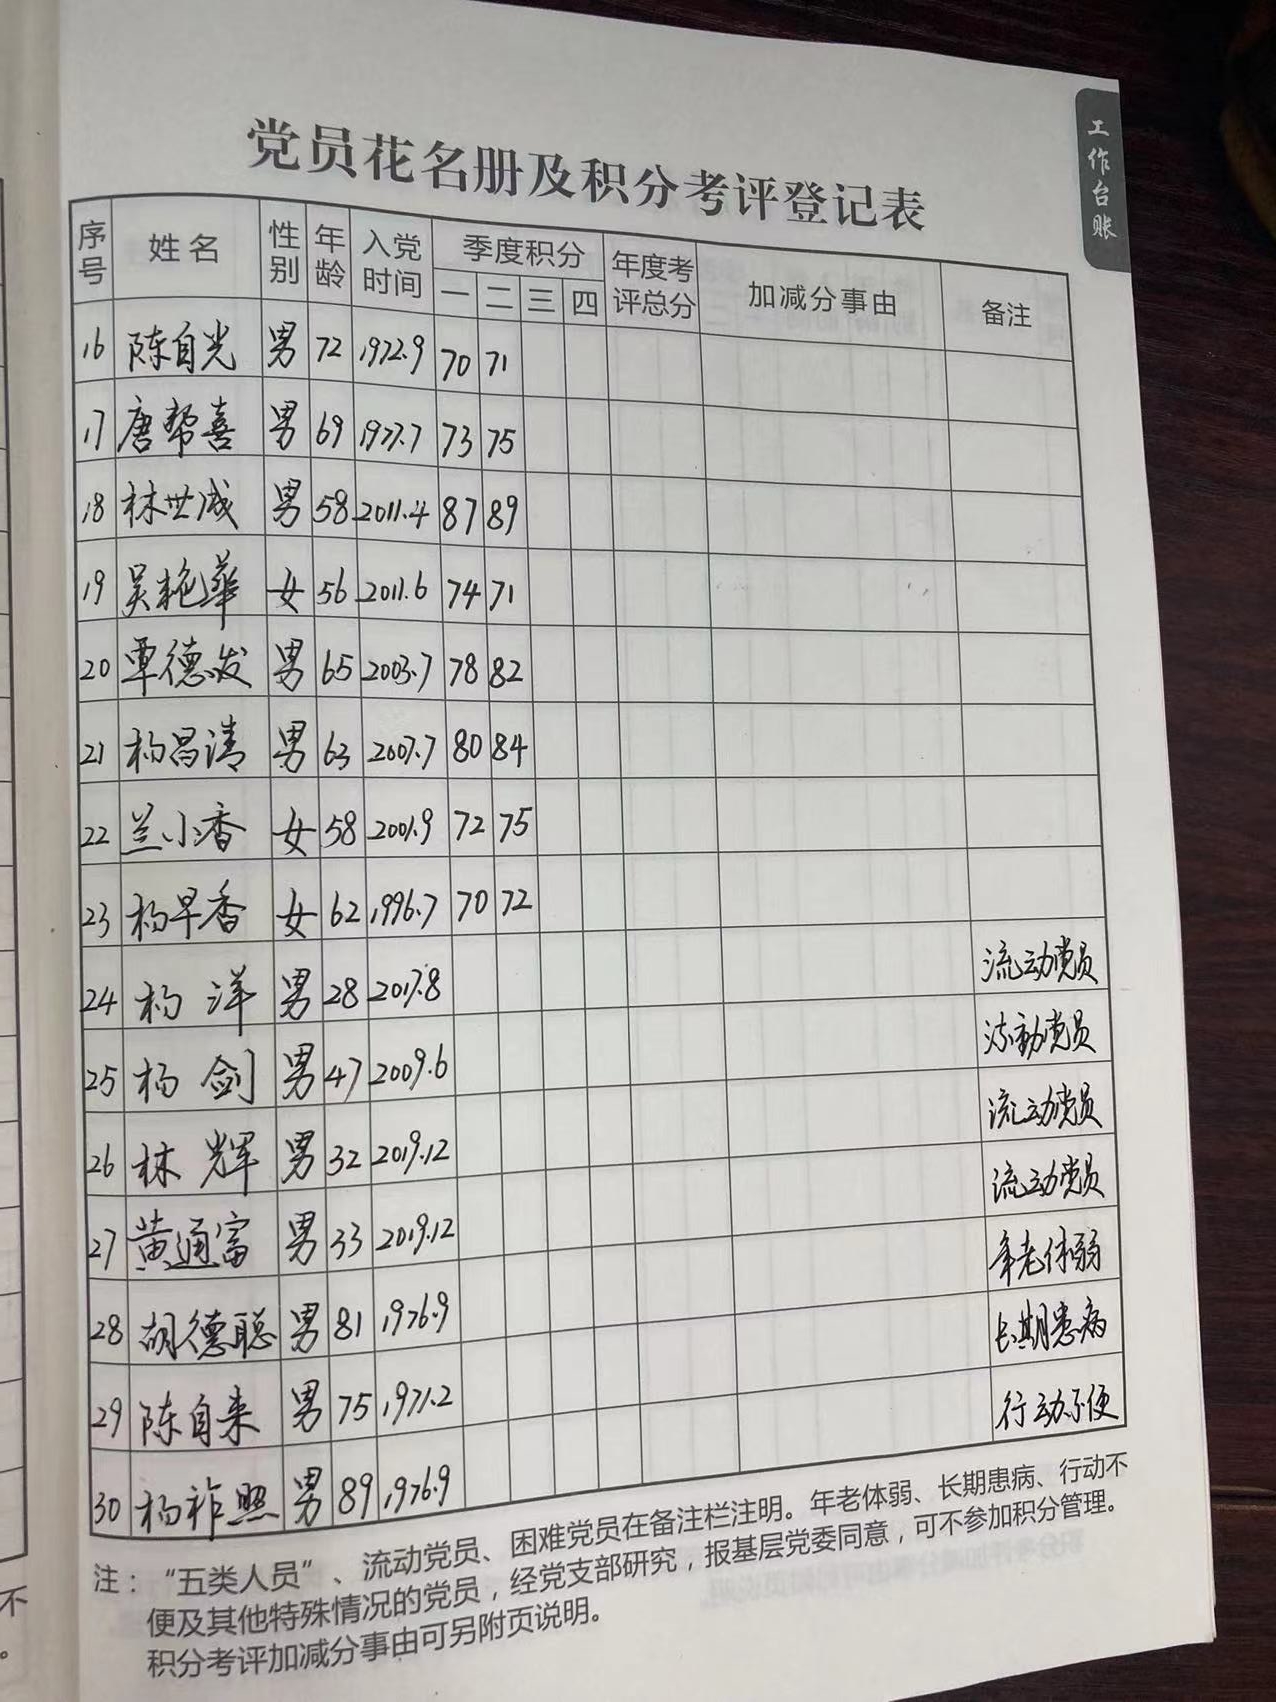 工作台账
党员花名册及积分考评登记表
序号 姓名 性别 年龄 入党时间 季度积分 一 二 三 四 年度考评总分 加减分事由 备注
16 陈自光 男 72 1972.9 70 71
17 唐帮喜 男 69 1977.7 73 75
18 林世成 男 58 2011.4 87 89
19 吴艳华 女 56 2011.6 74 71
20 覃德发 男 65 2003.7 78 82
21 杨昌清 男 63 2007.7 80 84
22 兰小香 女 58 2001.9 72 75
23 杨早香 女 62 1996.7 70 72
24 杨洋 男 28 2017.8 流动党员
25 杨剑 男 47 2009.6 流动党员
26 林辉 男 32 2019.12 流动党员
27 黄通富 男 33 2019.12 流动党员
28 胡德聪 男 81 1976.9 年老体弱
29 陈自来 男 75 1971.2 长期患病
30 杨祚照 男 89 1976.9 行动不便
注：“五类人员”、流动党员、困难党员在备注栏注明。年老体弱、长期患病、行动不
便及其他特殊情况的党员，经党支部研究，报基层党委同意，可不参加积分管理。
积分考评加减分事由可另附页说明。
不
。